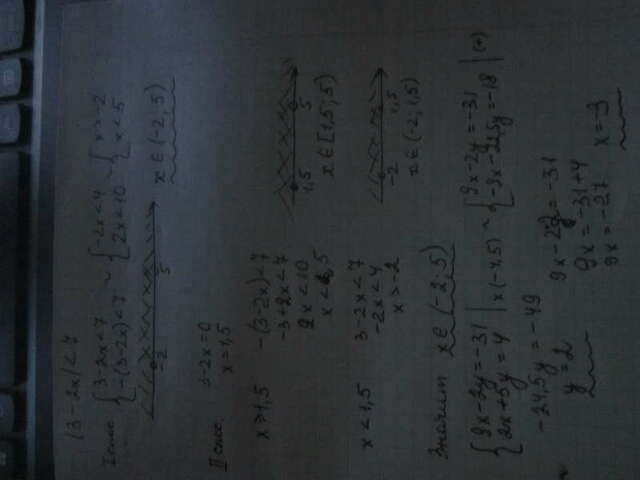 |3-2x|<7
I спос. { 3-2x<7 ~ { -2x<4 ~ { x>-2
-(3-2x)<7 2x<10 x<5
-2 5 x∈(-2;5)
II спос. 3-2x=0
x=1,5
x≥1,5 -(3-2x)<7
-3+2x<7
2x<10
x<5
1,5 5
x∈[1,5;5)
x<1,5 3-2x<7
-2x<4
x>-2
-2 1,5
x∈(-2;1,5)
Значит x∈(-2;5)
{ 9x-2y=-31 | ~ { 9x-2y=-31 | (+)
2x+5y=4 | x(-4,5) -9x-22,5y=-18
-24,5y=-49
y=2
9x-2·2=-31
9x=-31+4
9x=-27
x=-3